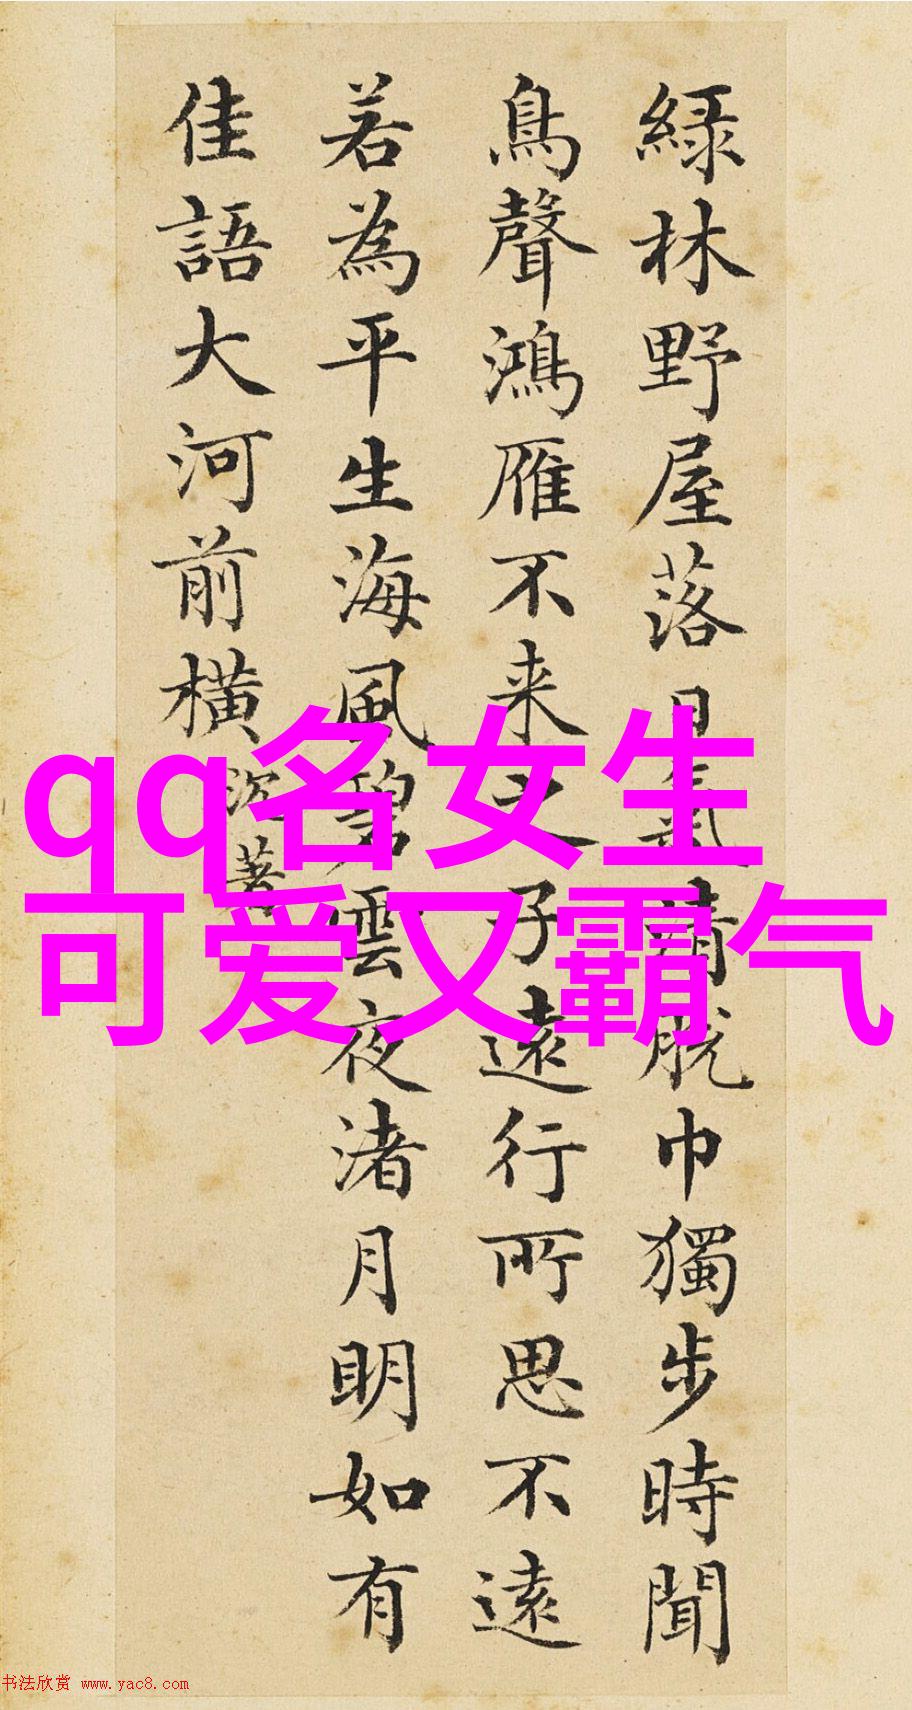 綠林野屋落日氣清脫巾獨步時聞
鳥聲鴻雁不来之子遠行所思不遠
若為平生海風碧雲夜渚月明如有
佳語大河前橫
沈荃
qq名女生
可爱又霸气
书法欣赏 www.yac8.com